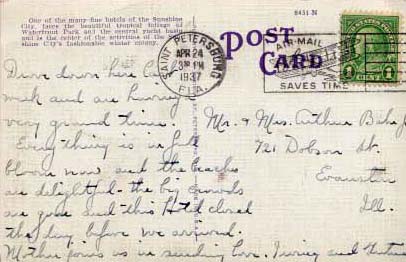 One of the many fine hotels of the Sunshine
City, faces the beautiful tropical foliage of
Waterfront Park and the central yacht basin
and is the center of the activities of the Sun-
shine City's fashionable winter colony.
8451 N
POST
CARD
SAINT PETERSBURG
APR 24
3 PM
1937
FLA.
AIR-MAIL
SAVES TIME
1 CENT 1
Drove down here last
week and are having
very grand time.
Every thing is in full
bloom now and the beaches
are delightful - the big crowds
are gone and this hotel closed
the day before we arrived.
Mother joins us in sending love.
Mr. & Mrs. Arthur
721 Dobson St.
Evanston
Ill.